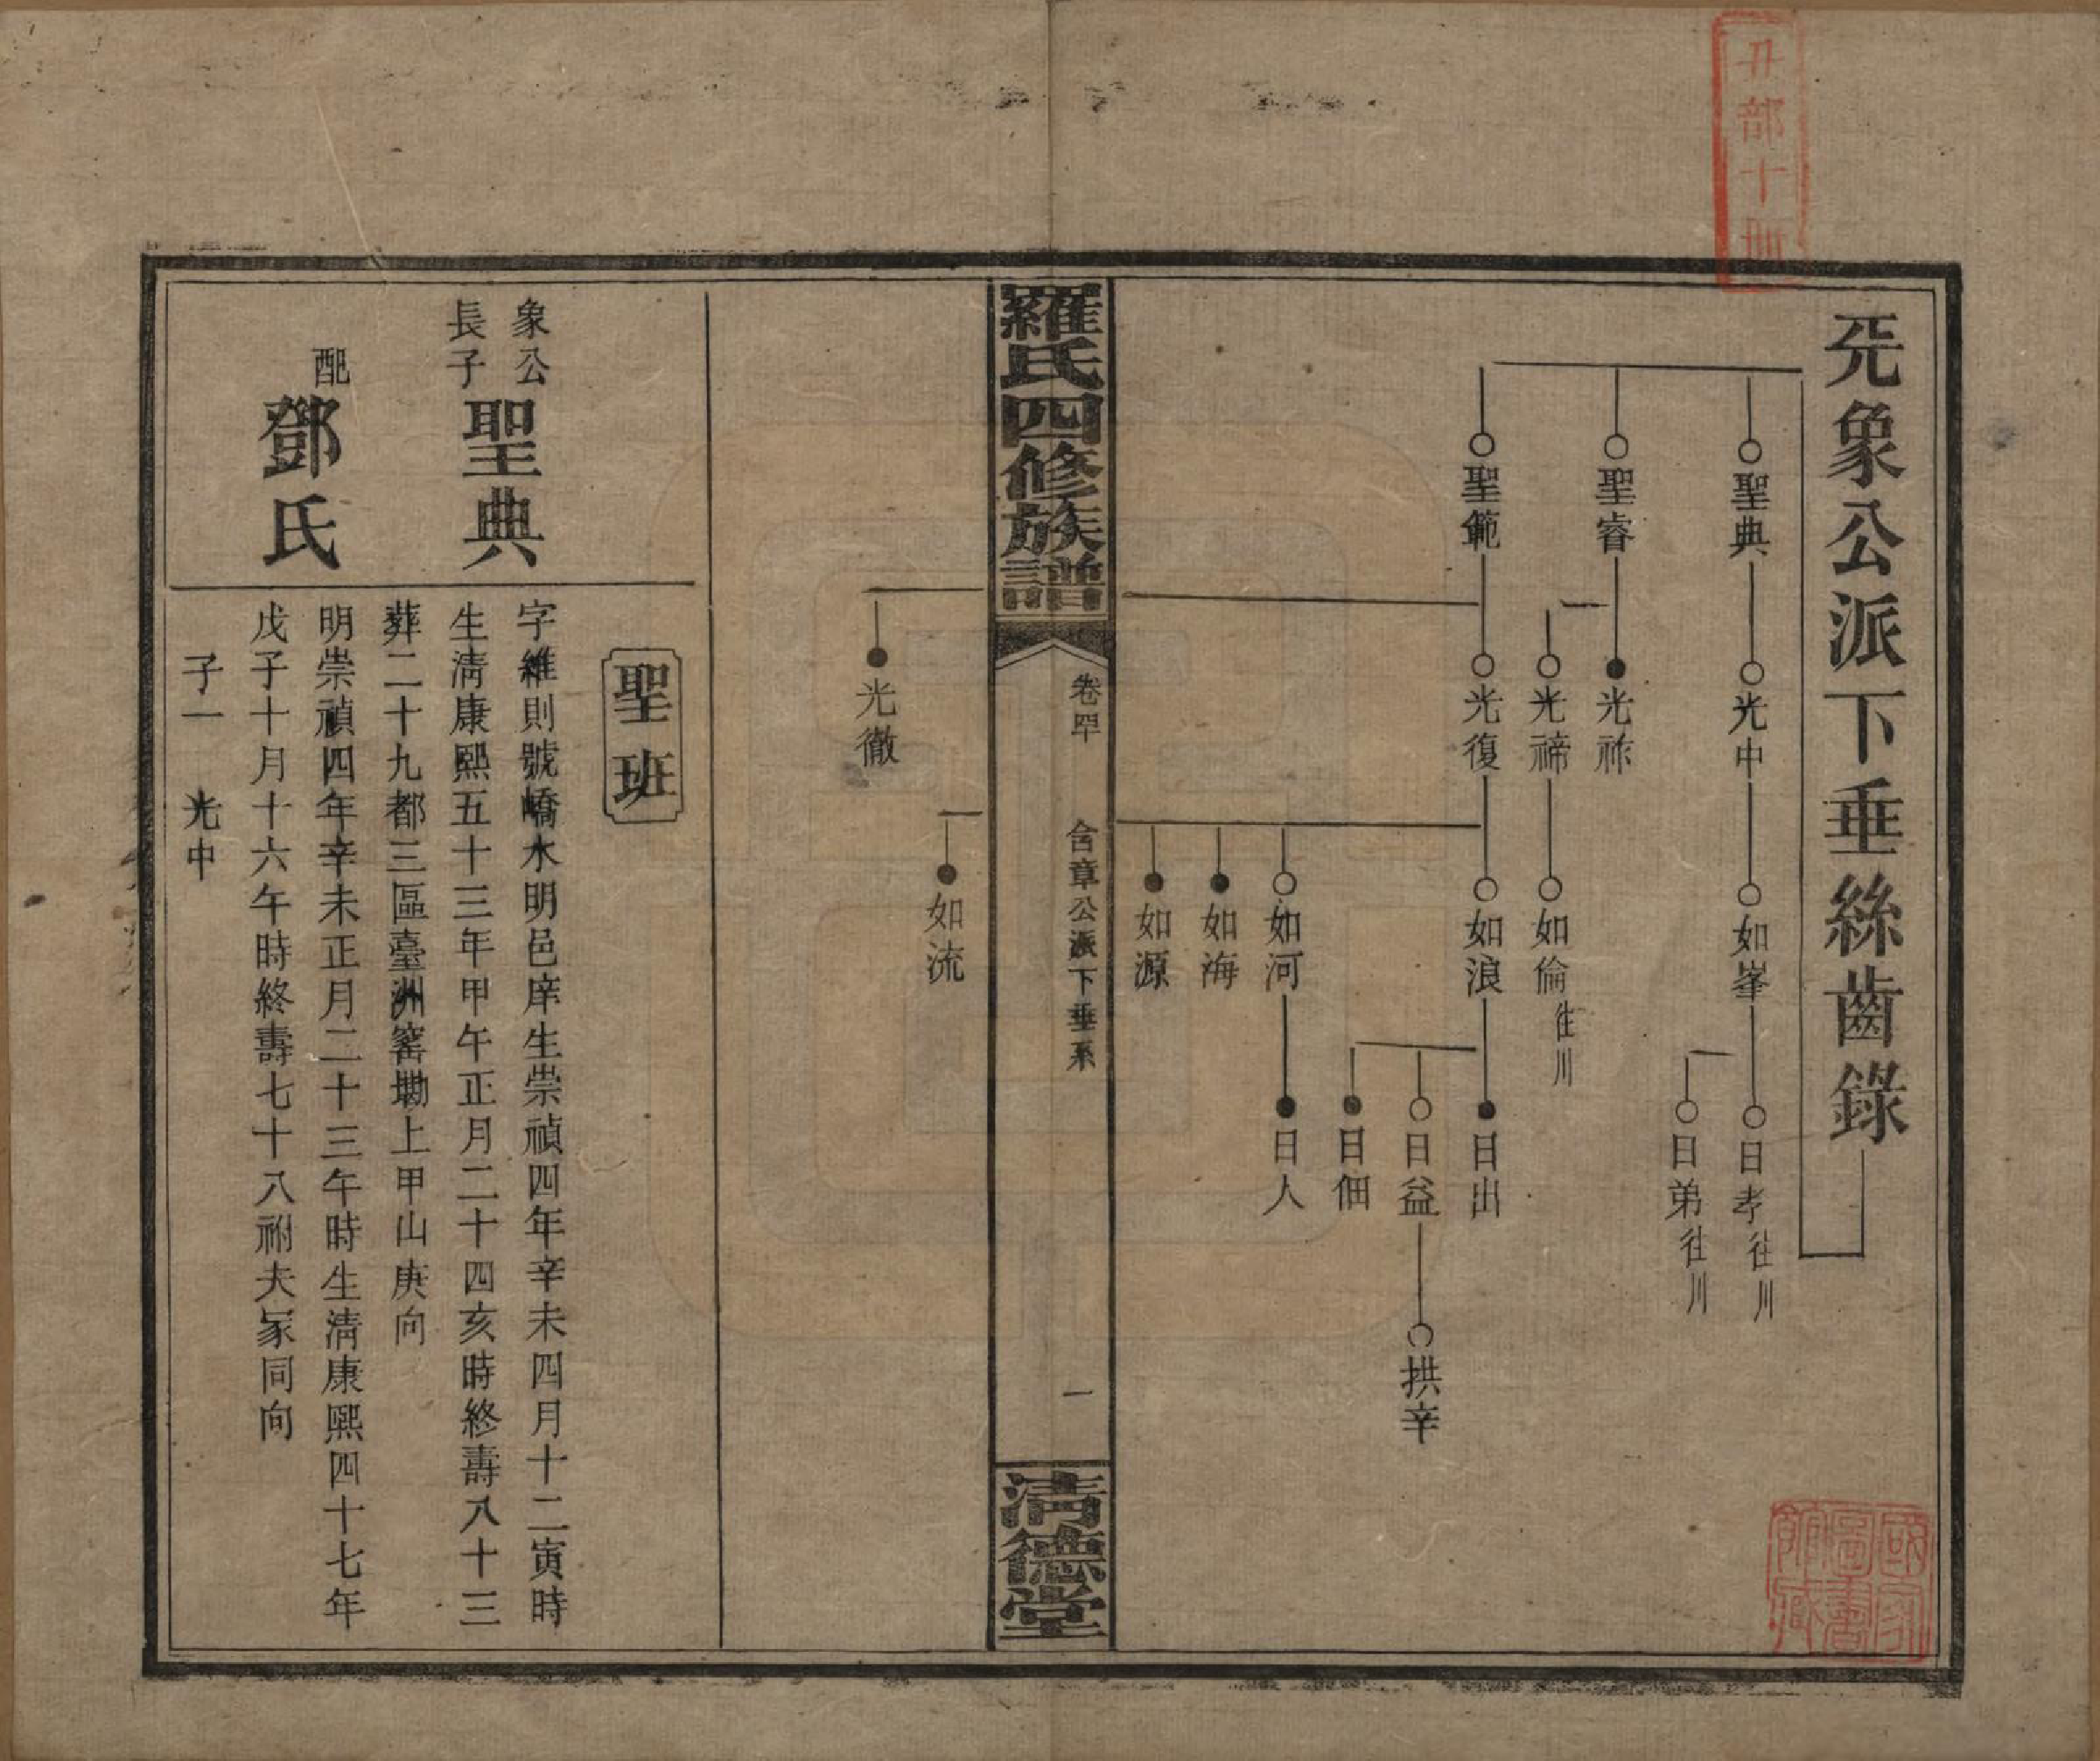 部十
象公派下垂絲齒錄
聖典
光中
如峯
日孝往川
日弟往川
聖睿
光祚
光禘
如倫往川
聖範
光復
如浪
日出
日益
拱辛
日佃
如河
日人
如海
如源
羅氏四修族譜
卷四十
含章公派下垂系
一
清德堂
如流
光徹
聖班
象公
長子
聖典
字維則號嶠水明邑庠生崇禎四年辛未四月十二寅時
生清康熙五十三年甲午正月二十四亥時終壽八十三
葬二十九都三區臺洲窰墈上甲山庚向
配
鄧氏
明崇禎四年辛未正月二十三午時生清康熙四十七年
戊子十月十六午時終壽七十八祔夫冢同向
子一 光中
國家圖書館藏